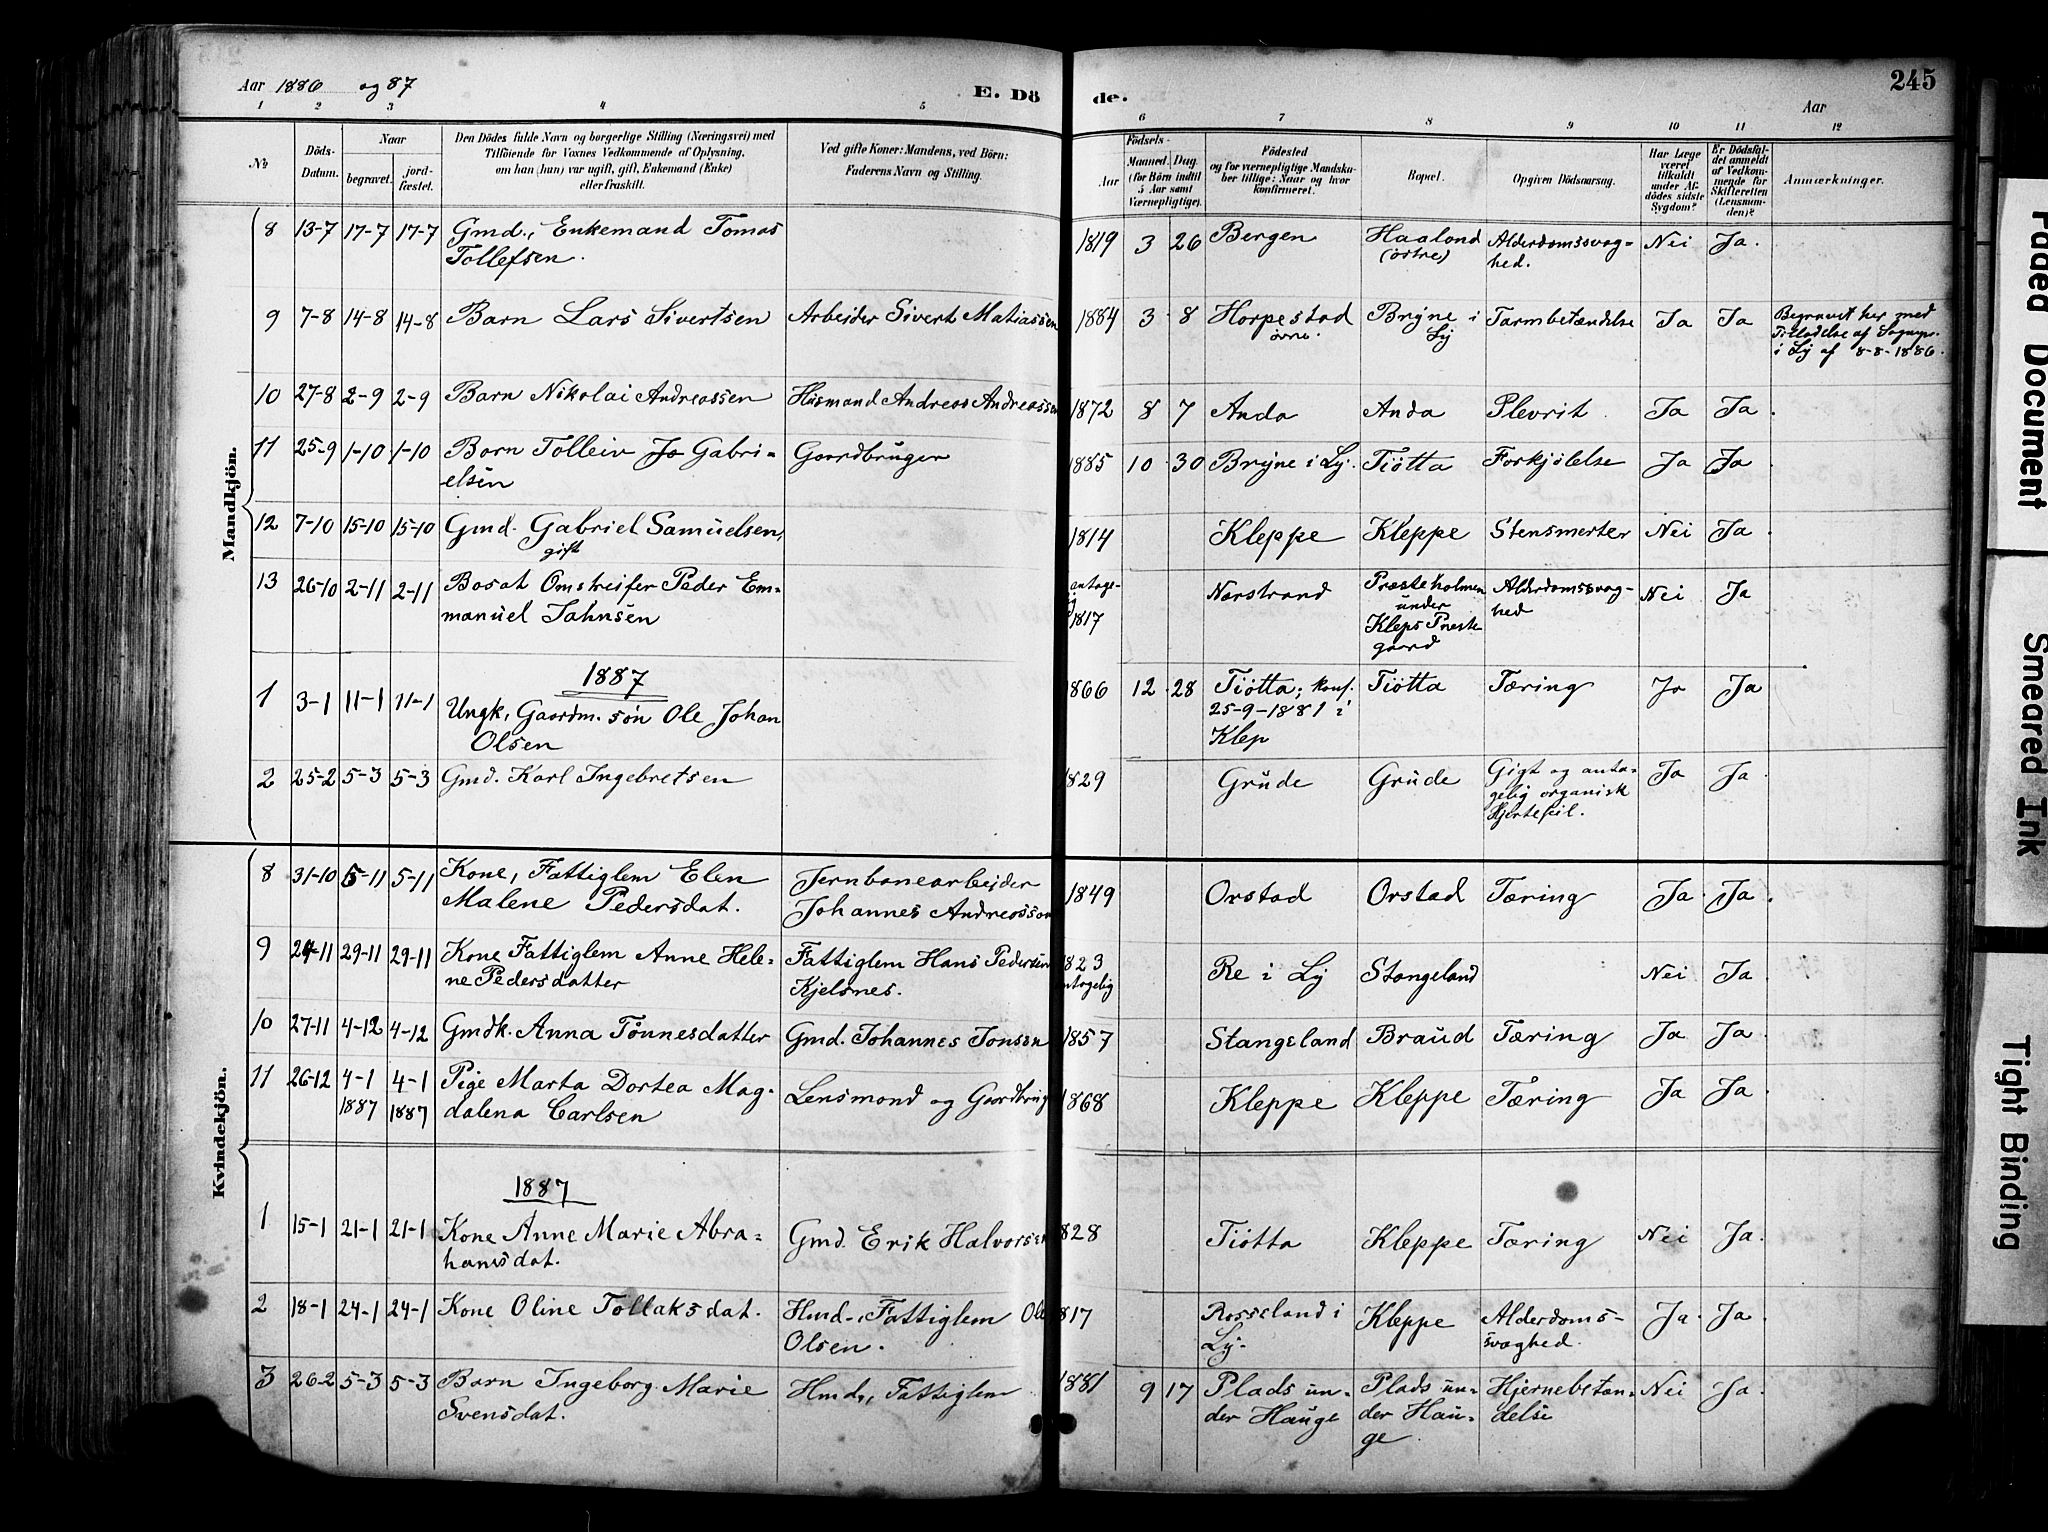 Aar 1886 og 87
E. Dö de.
Aar
245
1 2 3 4 5 6 7 8 9 10 11 12
No
Döds-Datum.
Naar
begravet.
jord-fæstet.
Den Dödes fulde Navn og borgerlige Stilling (Næringsvei) med
Tilföiende for Voxnes Vedkommende af Oplysning,
om han (hun) var ugift, gift, Enkemand (Enke)
eller fraskilt.
Ved gifte Koner: Mandens, ved Börn:
Faderens Navn og Stilling.
Födsels-
Aar
Maaned. Dag
(for Börn indtil
5 Aar samt
Værnepligtige).
Födested
og for værnepligtige Mandska-
ber tillige: Naar og hvor
konfirmeret.
Bopæl.
Opgiven Dödsaarsag.
Har Læge
været
tilkaldt
under Af-
dödes sidste
Sygdom?
Er Dödsfal-
det anmeldt
af Vedkom-
mende for
Skifteretten
(Lensman-
den)?
Anmærkninger.
Mandkjön.
8 13-7 17-7 17-7 Gmd., Enkemand Tomas
Tollefsen. 1819 3 26 Bergen Haaland
(östre) Alderdomssvag-
hed. Nei Ja.
9 7-8 14-8 14-8 Barn Lars Sivertsen Arbeider Sivert Matiassen 1884 3 8 Horpestad
övre. Bryne i
Ly Tarmbetændelse Ja Ja Begravet her med
Tilladelse af Sognepr.
i Ly af 8-8-1886.
10 27-8 2-9 2-9 Barn Nikolai Andreassen Husmand Andreas Andreassen 1872 8 7 Anda Anda Plevrit. Ja Ja.
11 25-9 1-10 1-10 Barn Tolleiv Jo Gabri-
elsen Gaardbruger 1885 10 30 Bryne i Ly. Tiötta Forkjölelse Ja Ja
12 7-10 15-10 15-10 Gmd. Gabriel Samuelsen,
gift 1814 Kleppe Kleppe Stensmerter Nei Ja.
13 26-10 2-11 2-11 Bosat Omstreifer Peder Em-
manuel Jahnsen antage-
1817 Narstrand Præsteholmen
under
Kleps Preste
gaard Alderdomssvag-
hed Nei Ja
1887
1 3-1 11-1 11-1 Ungk., Gaardm. sön Ole Johan
Olsen 1866 12 28 Tiötta; konf.
25-9-1881 i
Klep Tiötta Tæring Ja Ja
2 25-2 5-3 5-3 Gmd. Karl Ingebretsen 1829 Grude Grude Gigt og anta-
gelig organisk
Hjertefeil. Ja Ja.
Kvindekjön.
8 31-10 5-11 5-11 Kone, Fattiglem Elen
Malene Pedersdat. Jernbanearbeider
Johannes Andreassen 1849 Orstad Orstad Tæring Ja Ja.
9 24-11 29-11 29-11 Kone Fattiglem Anne Hele-
ne Pedersdatter Fattiglem Hans Pedersen
Kjelsnes. 823
ntagelig Re i Ly Stangeland Nei Ja.
10 27-11 4-12 4-12 Gmdk. Anna Tönnesdatter Gmd. Johannes Jonsen 1857 Stangeland Braud Tæring Ja Ja.
11 26-12 4-1
1887 4-1
1887 Pige Marta Dortea Mag-
dalena Carlsen Lensmand og Gaardbrug 1868 Kleppe Kleppe Tæring Ja Ja.
1887
1 15-1 21-1 21-1 Kone Anne Marie Abra-
hamsdat. Gmd. Erik Halvorsen 828 Tiötta Kleppe Tæring Nei Ja.
2 18-1 24-1 24-1 Kone Oline Tollaksdat. Hmd., Fattiglem Ole
Olsen. 817 Rosseland i
Ly. Kleppe Alderdoms-
svaghed. Ja. Ja.
3 26-2 5-3 5-3 Barn Ingeborg Marie
Svensdat. Hmd., Fattiglem 1881 9 17 Plads un-
der Hauge Plads un-
der Hau-
ge Hjernebetæn-
delse Nei Ja.
Faded Document
Smeared Ink
Tight Binding